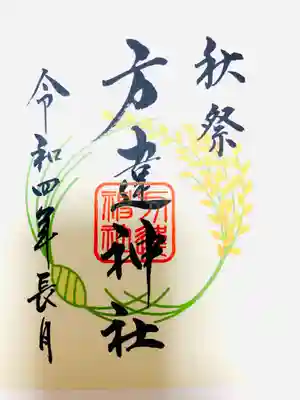 秋祭
方違神社
令和四年長月
方違神社